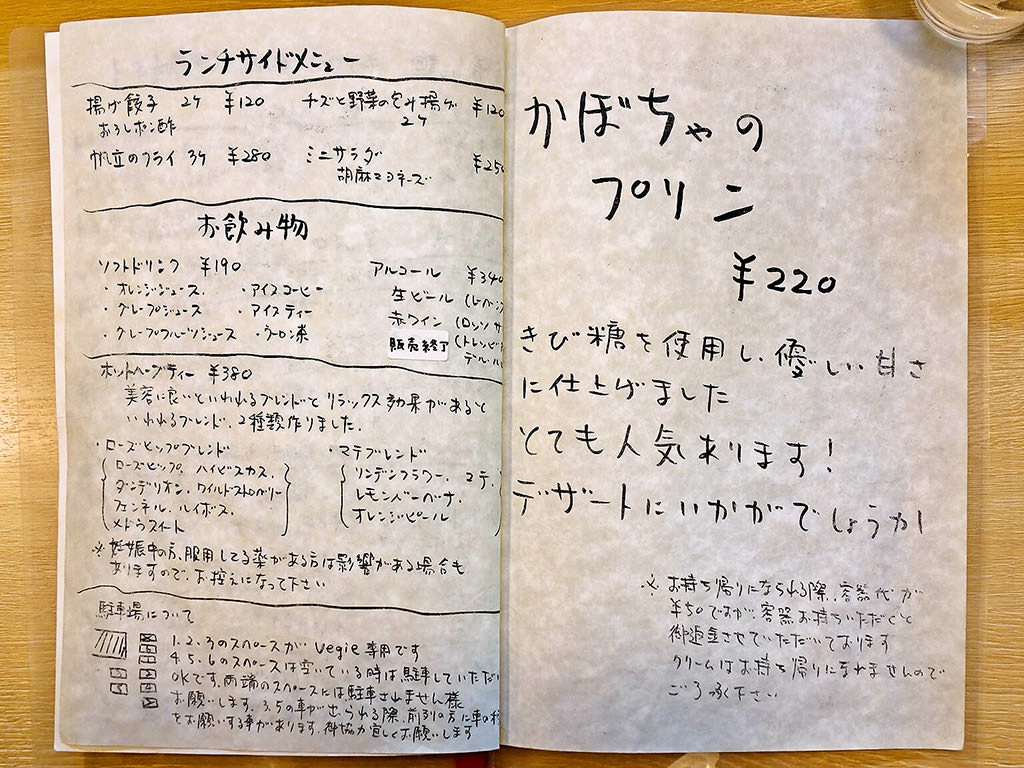 ランチサイドメニュー
揚げ餃子 2ケ ¥120
おろしポン酢
チーズと野菜の包み揚げ ¥120
2ケ
帆立のフライ 3ケ ¥280
ミニサラダ ¥250
胡麻マヨネーズ
お飲み物
ソフトドリンク ¥190
・オレンジジュース ・アイスコーヒー
・グレープジュース ・アイスティー
・グレープフルーツジュース ・ウーロン茶
アルコール ¥340
生ビール
赤ワイン (ロッソ
販売終了
ホットハーブティー ¥380
美容に良いといわれるブレンドとリラックス効果があると
いわれるブレンド、2種類作りました。
・ローズヒップブレンド
ローズヒップ、ハイビスカス、
ダンデリオン、ワイルドストロベリー
フェンネル、ルイボス、
メドウスイート
・マテブレンド
リンデンフラワー、マテ、
レモンバーベナ、
オレンジピール
※妊娠中の方、服用してる薬がある方は影響がある場合も
ありますので、お控えになって下さい
駐車場について
1.2.3のスペースがvegie専用です
4.5.6のスペースは空いている時は駐車していただい
OKです。両端のスペースには駐車されません様
お願いします。3.5の車が出られる際、前列の方に車の移
をお願いする事があります。御協力宜しくお願いします
かぼちゃの
プリン
¥220
きび糖を使用し、優しい甘さ
に仕上げました
とても人気あります!
デザートにいかがでしょうか
※お持ち帰りになられる際、容器代が
¥50ですが、容器お持ちいただくと
御返金させていただいております
クリームはお持ち帰りになれませんので
ご了承下さい